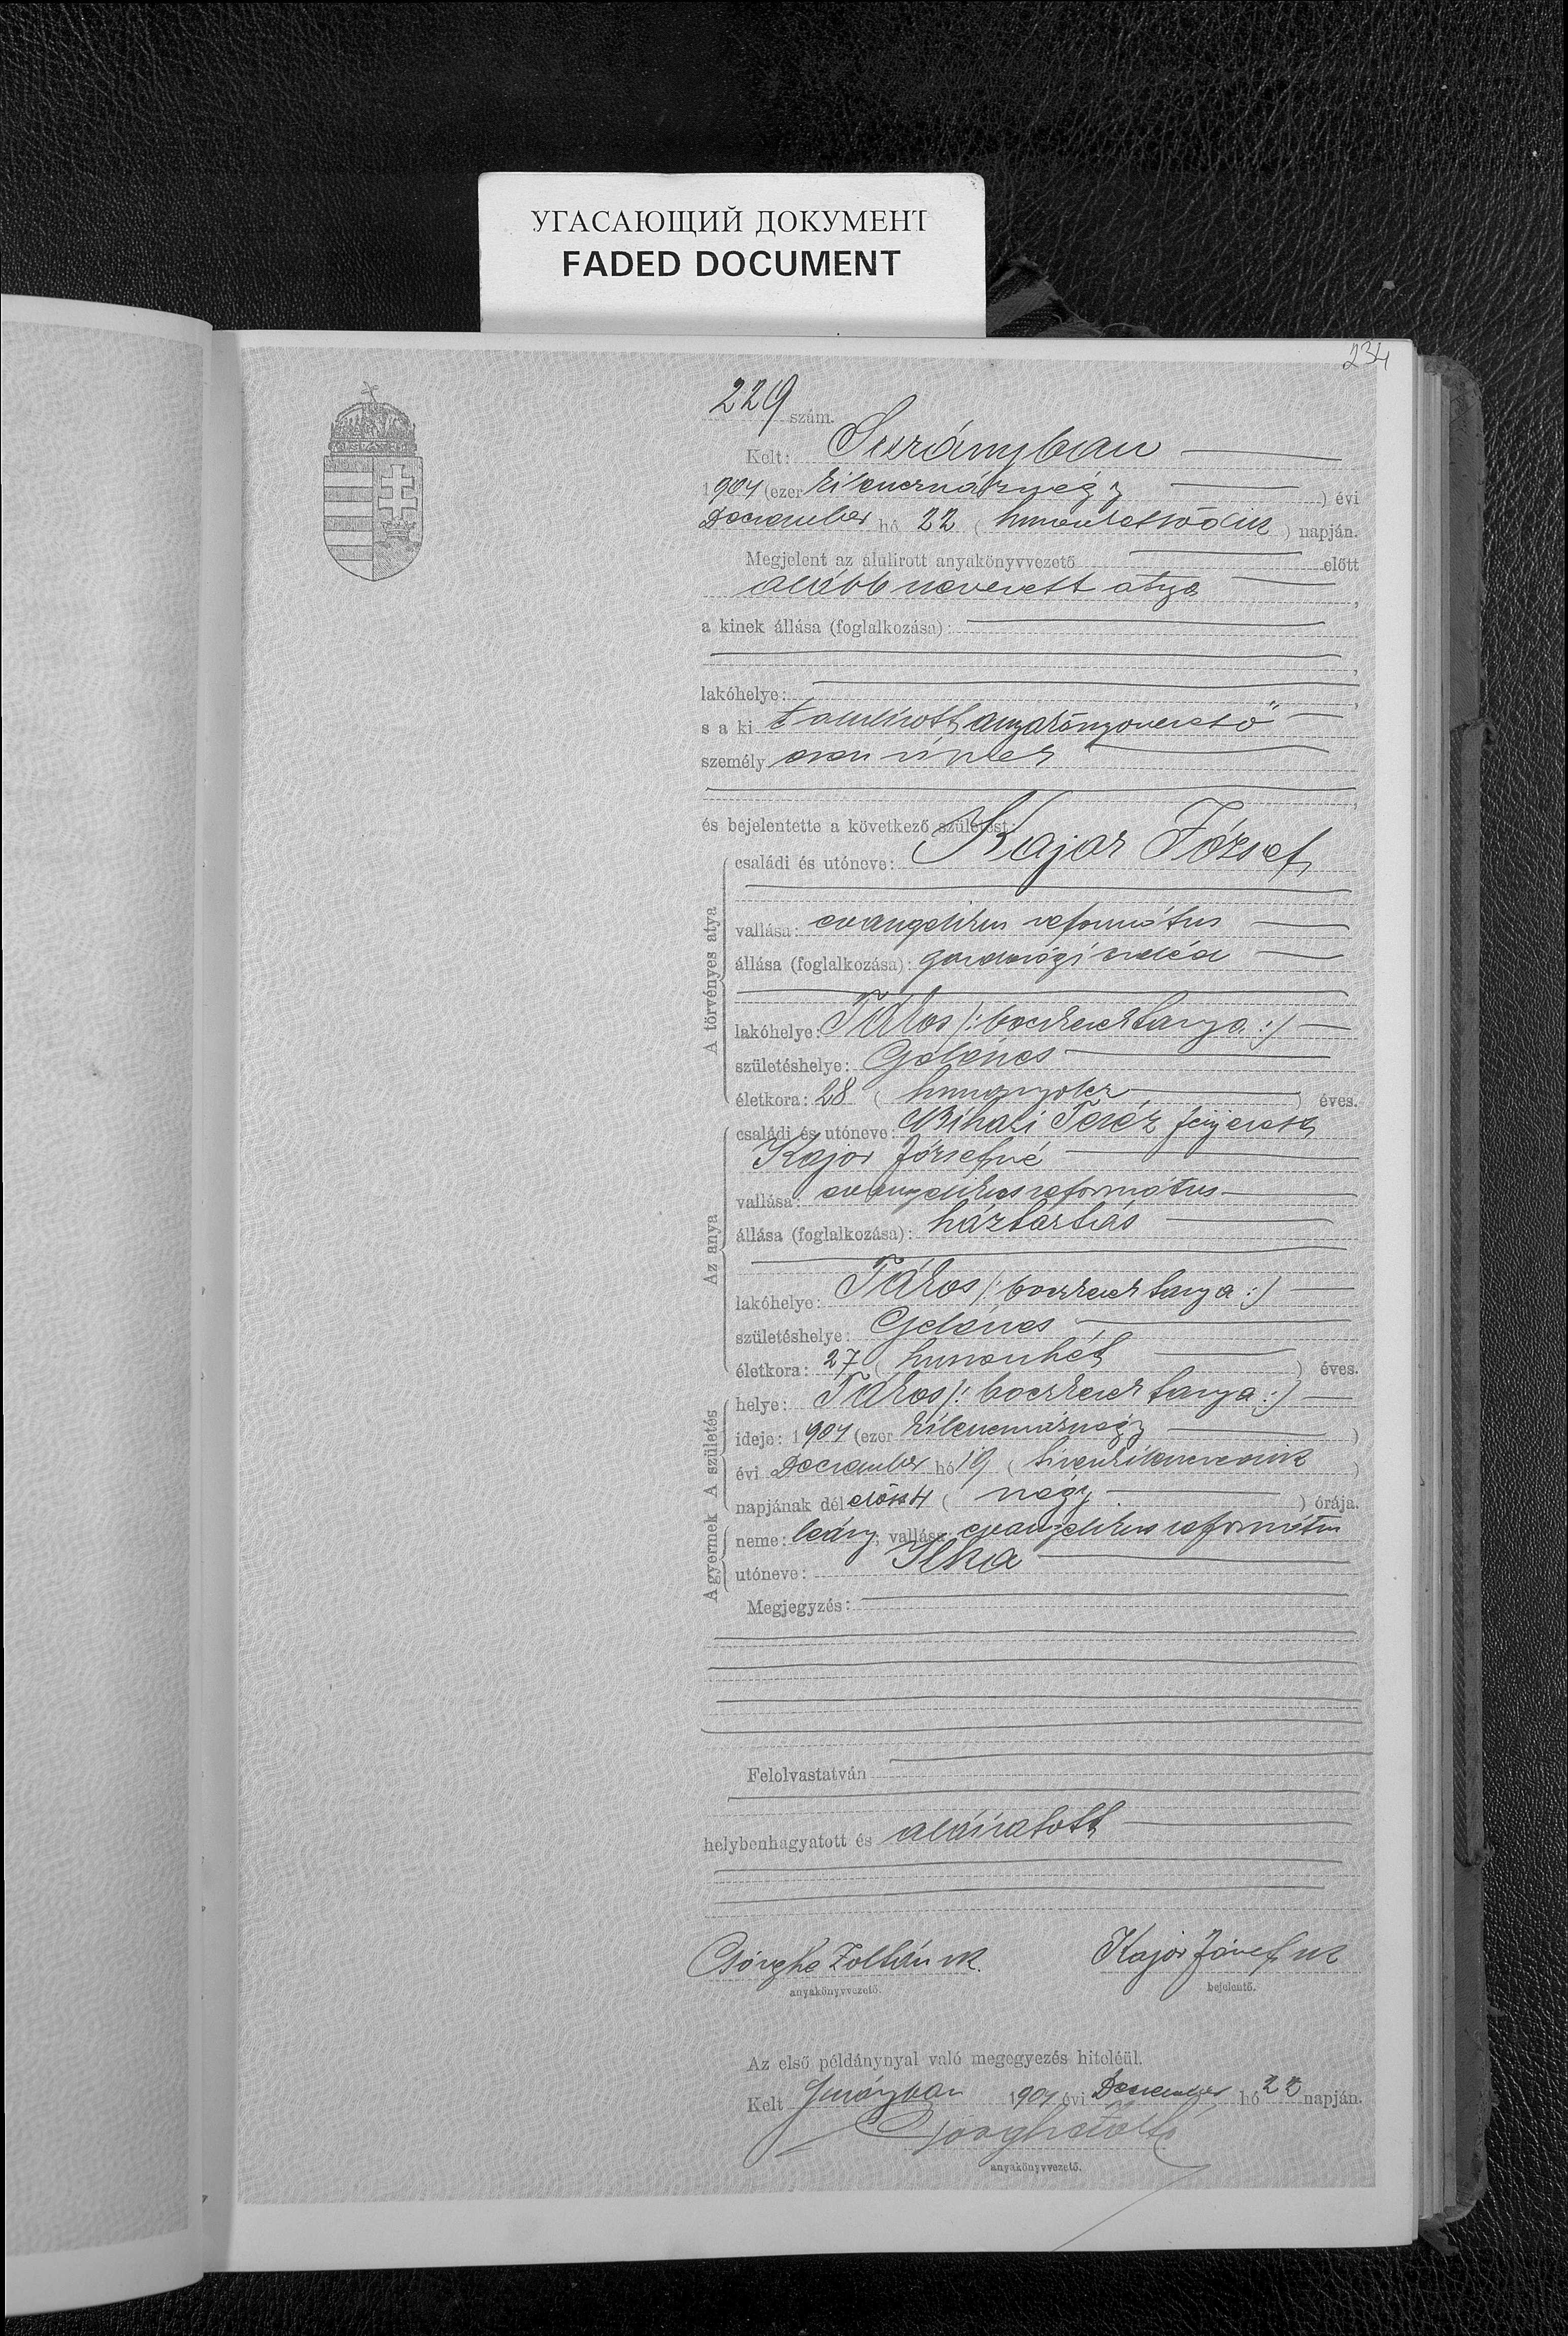 УГАСАЮЩИЙ ДОКУМЕНТ
FADED DOCUMENT
234
229 szám.
Kelt: Surányban
1904 (ezer kilencznáznégy) évi
December hó 22 (huszonkettődik) napján.
Megjelent az alulirott anyakönyvvezető előtt
alább nevezett atya,
a kinek állása (foglalkozása):
lakóhelye:
s a ki t alulirott anyakönyvvezető
személyesen ismer
és bejelentette a következő születést:
A törvényes atya
családi és utóneve: Kajor József
vallása: evangelikus református
állása (foglalkozása): gazdasági cseléd
lakóhelye: Tákos /: tanya :/
születéshelye: Gelénes
életkora: 28 (husznyolcz) éves.
Az anya
családi és utóneve: Bihari Teréz férjezett
Kajor Józsefné
vallása: evangelikus református
állása (foglalkozása): háztartás
lakóhelye: Tákos /: tanya :/
születéshelye: Gelénes
életkora: 27 (huszonhét) éves.
A születés
helye: Tákos /: tanya :/
ideje: 1904 (ezer kilenczszáznégy)
évi December hó 19 (tizenkilenczedik)
napjának délelőtt 4 (négy) órája.
A gyermek
neme: leány, vallása: evangelikus református
utóneve: Ilka
Megjegyzés:
Felolvastatván
helybenhagyatott és aláiratott
Zoltán sk. Kajor József sk
anyakönyvvezető. bejelentő.
Az első példánynyal való megegyezés hiteléül.
Kelt Surányban 1904 évi December hó 22 napján.
anyakönyvvezető.